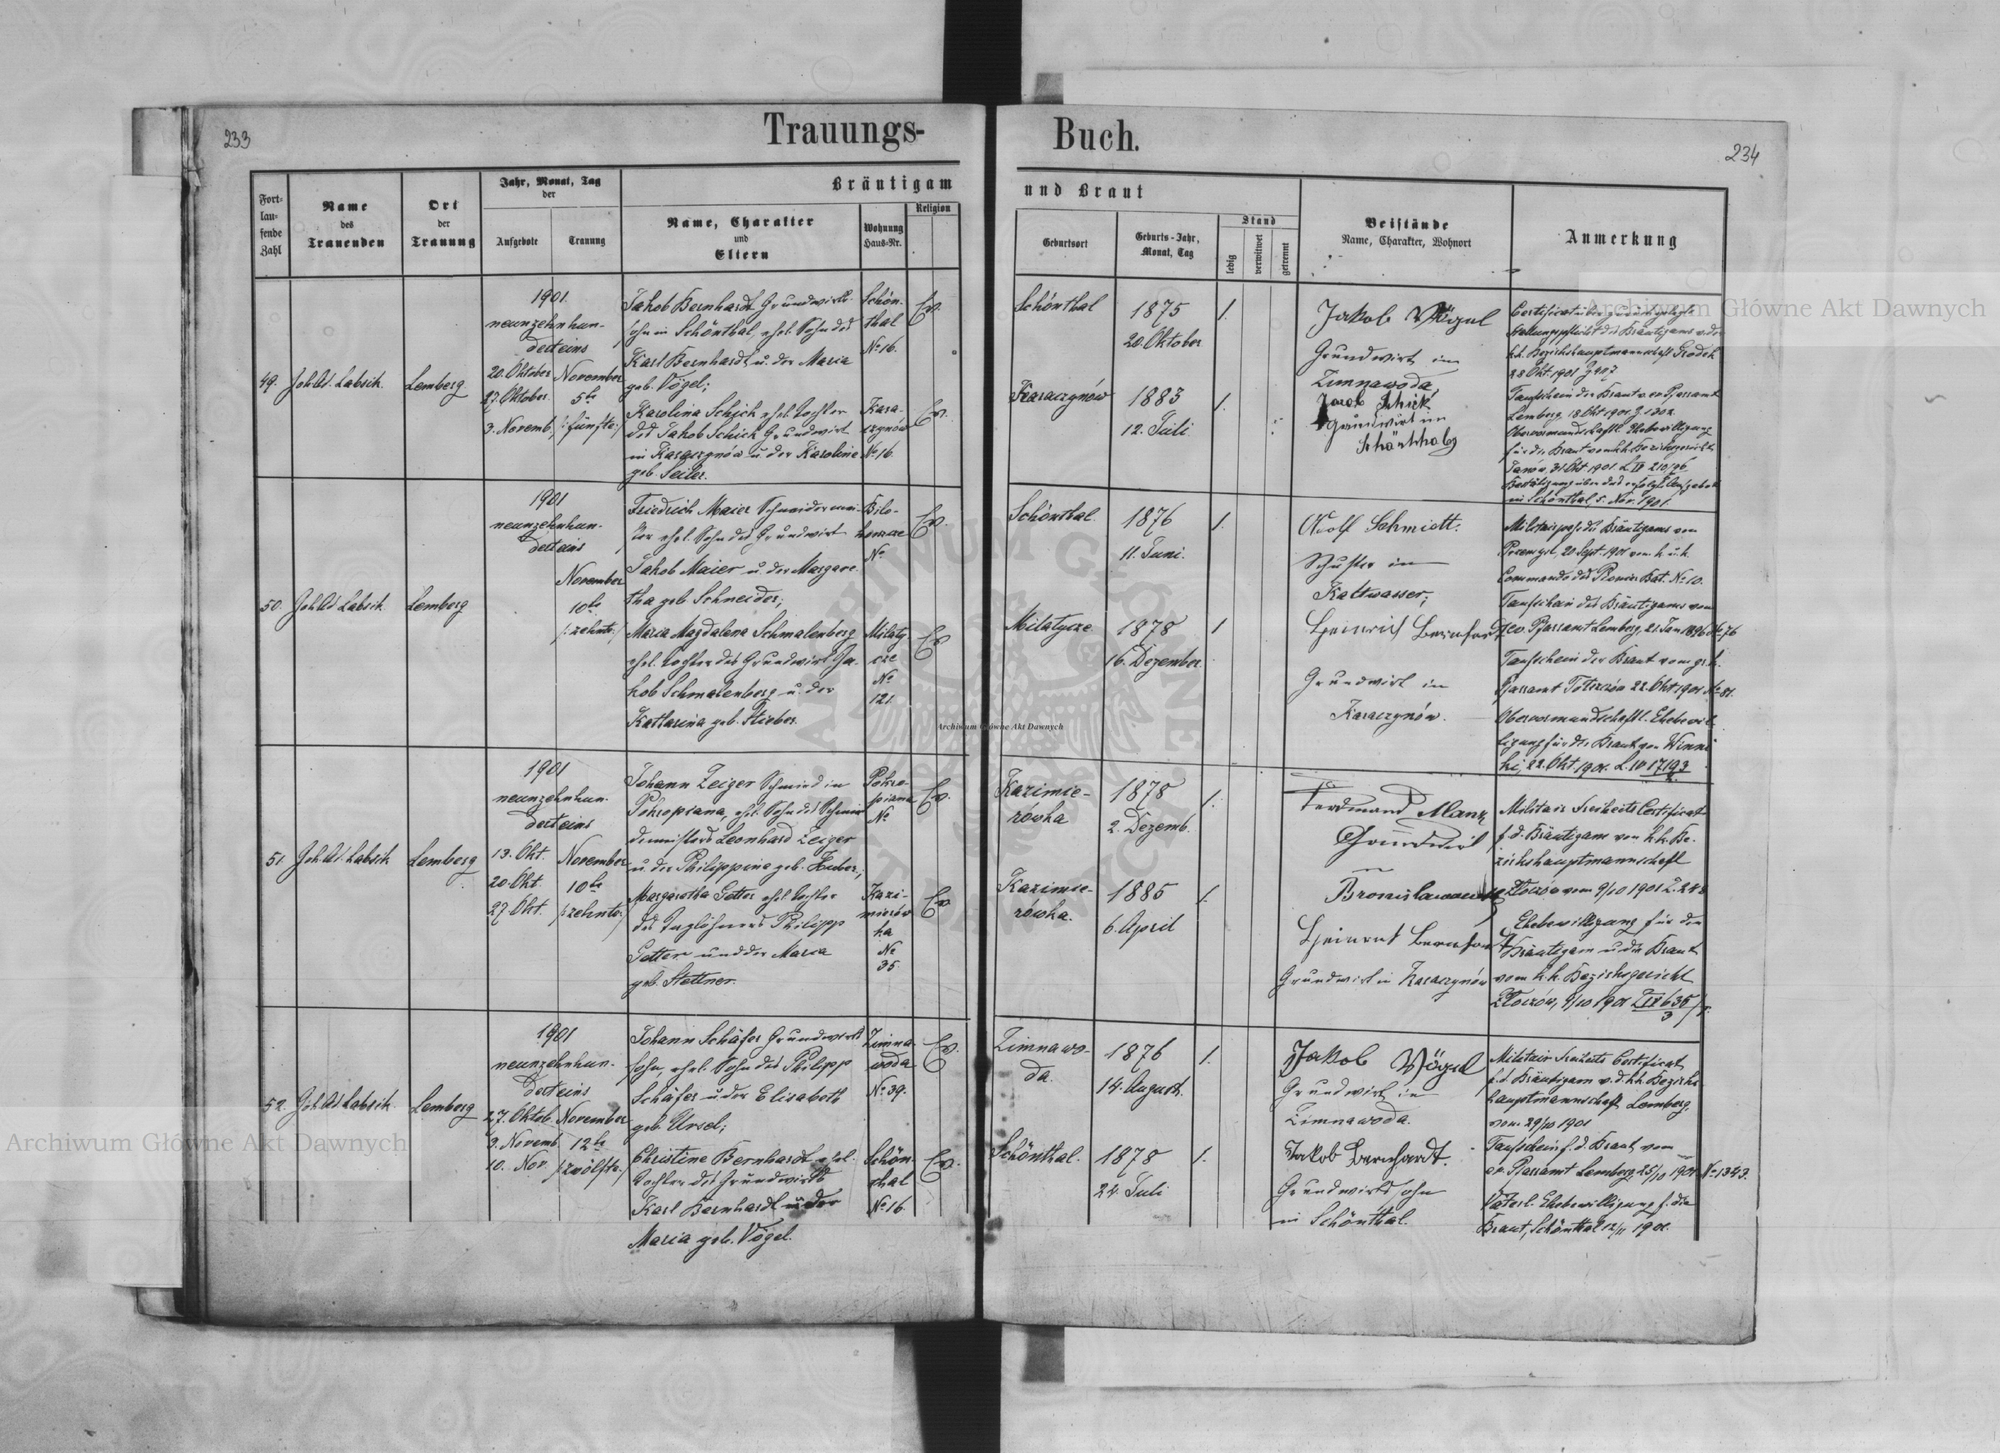 233
Trauungs-
Buch.
234
Fort-
lau-
fende
Zahl
Name
des
Trauenden
Ort
der
Trauung
Jahr, Monat, Tag
der
Aufgebote
Trauung
Bräutigam
Name, Charakter
und
Eltern
Wohnung
Haus-Nr.
Religion
und Braut
Geburtsort
Geburts-Jahr,
Monat, Tag
Stand
ledig
verwitwet
getrennt
Beistände
Name, Charakter, Wohnort
Anmerkung
49.
Lemberg
1901.
neunzehnhun-
derteins
20. Oktober
27. Oktober
3. Novemb.
November
5te
/:fünfte:/
Jakob Bernhardt Grundwirts-
sohn in Schönthal, ehel. Sohn des
Karl Bernhardt u. der Maria
geb. Vögel;
Karolina Schick ehel. Tochter
des Jakob Schick Grundwirt
in Karaczynów u. der Karoline
geb. Seiler.
Schön-
thal
No 16.
Kara-
czynów
No 16.
Ev.
Ev.
Schönthal
1875
20. Oktober
1.
Karaczynów
1883
12. Juli
1.
Jakob Vögel
Grundwirt in
Zimnawoda,
Jacob Schick
Grundwirt in
Schönthal
k.k. Bezirkshauptmannschaft Grodek
28 Okt. 1901
Taufschein der Braut v. ev. Pfarramt
Lemberg, 18 Okt. 1901
in Schönthal, 5. Nov. 1901.
50.
Lemberg
1901
neunzehnhun-
derteins
November
10te
/:zehnte:/
Friedrich Maier Schneidermei-
ster ehel. Sohn des Grundwirt
Jakob Maier u. der Margare-
tha geb. Schneider;
Maria Magdalena Schmalenberg
ehel. Tochter des Grundwirt Ja-
kob Schmalenberg u. der
Katharina geb. Stieber.
Bilo-
horszcze
No
Milaty-
cze
No
121.
Ev.
Ev.
Schönthal
1876
11. Juni.
1.
Milatycze
1878
16. Dezember
1
Adolf Schmidt.
Schuster in
Kaltwasser;
Heinrich Bernhardt
Grundwirt in
Karaczynów.
Militairpass des Bräutigams von
Przemysl, 20 Sept. 1901 vom k. u. k.
Commando des Pionier Bat. No 10.
Taufschein des Bräutigams vom
ev. Pfarramt Lemberg, 21. Jan 1896 No 76
Taufschein der Braut vom gr. k.
Pfarramt Tołszczów 22. Okt. 1901 No 81.
Obervormundschaftl. Ehebewil-
ligung für die Braut von Winni-
ki, 22. Okt. 1901.
51.
Lemberg
1901
neunzehnhun-
derteins
13. Okt.
20. Okt.
27. Okt.
November
10te
/:zehnte:/
Johann Zeiger Schmied in
Pokropiana, ehel. Sohn des Schmie-
demeisters Leonhard Zeiger
u. der Philippine geb. Huber;
Margaretha Getter ehel. Tochter
des Taglöhners Philipp
Getter und der Maria
geb. Stettner.
Pokro-
piana
No
Kazi-
mierów-
ka
No
35
Ev.
Ev.
Kazimie-
rówka
1878
2. Dezemb.
1.
Kazimie-
rówka.
1885
6. April
1.
Ferdinand Manz
Grundwirt
in
Heinrich Bernhardt
Grundwirt in Karaczynów
Militair Freiheits Certificat
f. d. Bräutigam von k.k. Be-
zirkshauptmannschaft
Złoczów vom 9/10 1901
Ehebewilligung für den
Bräutigam u. die Braut
vom k. k. Bezirksgericht
Złoczów, 9/10 1901
52.
Lemberg
1901
neunzehnhun-
derteins
27. Oktob.
3. Novemb.
10. Nov.
November
12te
/:zwölfte:/
Johann Schäfer Grundwirts-
sohn, ehel. Sohn des Philipp
Schäfer u. der Elisabeth
geb. Ursel;
Christine Bernhardt ehel.
Tochter des Grundwirts
Karl Bernhardt u. der
Maria geb. Vögel.
Zimna-
woda
No 39.
Schön-
thal
No 16.
Ev.
Ev.
Zimnawo-
da.
1876
14. August.
1.
Schönthal.
1878
24. Juli
1.
Jakob Vögel
Grundwirt in
Zimnawoda.
Jakob Bernhardt.
Grundwirtssohn
in Schönthal.
Militair Freiheits Certificat
f. d. Bräutigam v. d. k.k. Bezirks-
hauptmannschaft Lemberg.
vom 29/10 1901
Taufschein f. d. Braut vom
ev. Pfarramt Lemberg, 25/10 1901 No 1343.
Väterl. Ehebewilligung f. die
Braut, Schönthal 12/11 1901.
Archiwum Główne Akt Dawnych
Archiwum Główne Akt Dawnych
Archiwum Główne Akt Dawnych
ARCHIWUM GŁÓWNE AKT DAWNYCH